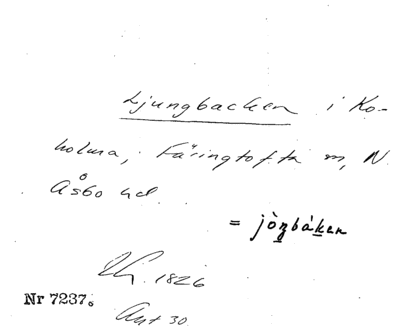 Ljungbacken i Ko-
holma, Färingtofta sn, N.
Åsbo hd.
= jòṉbák̲en
1826
Nr 7237.
Ant 30